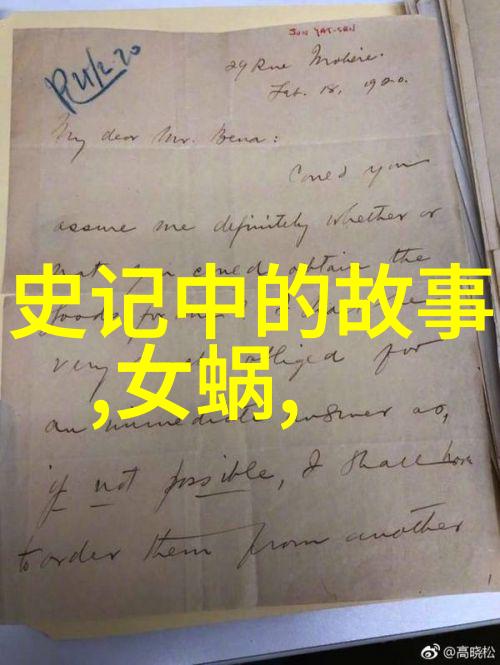 SUN YAT-SEN
R 21/2-20
29 Rue Molière.
Feb. 18, 1920.
My dear Mr. Bena:
Could you
assure me definitely whether or
not you could obtain the
goods for me? I
very obliged for
an immediate answer as,
if not possible, I shall have
to order them from another
史记中的故事
,女蜗,
@高晓松